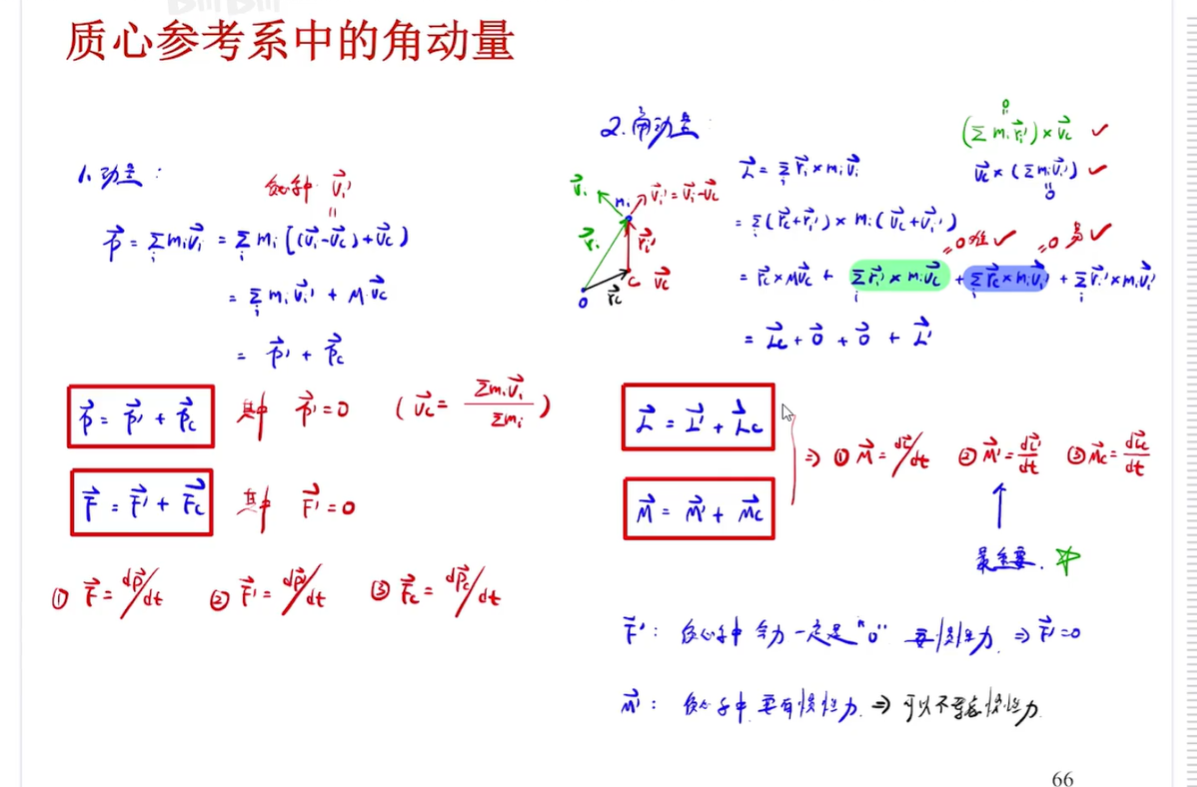 质心参考系中的角动量
1. 动量:
质心系中 \vec{v}_i'
\vec{P} = \sum_i m_i\vec{v}_i = \sum_i m_i[(\vec{v}_i-\vec{v}_c)+\vec{v}_c]
= \sum_i m_i\vec{v}_i' + M\vec{v}_c
= \vec{P}' + \vec{P}_c
\vec{P} = \vec{P}' + \vec{P}_c 其中 \vec{P}'=0 (\vec{v}_c = \frac{\sum m_i\vec{v}_i}{\sum m_i})
\vec{F} = \vec{F}' + \vec{F}_c 其中 \vec{F}'=0
① \vec{F} = d\vec{P}/dt ② \vec{F}' = d\vec{P}'/dt ③ \vec{F}_c = d\vec{P}_c/dt
2. 角动量:
\vec{v}_i m_i \vec{v}_i'=\vec{v}_i-\vec{v}_c
\vec{r}_i \vec{r}_i'
C \vec{v}_c
O \vec{r}_c
0
(\sum m_i\vec{r}_i')×\vec{v}_c ✓
\vec{L} = \sum_i \vec{r}_i × m_i\vec{v}_i
\vec{r}_c×(\sum m_i\vec{v}_i') ✓
0
= \sum_i(\vec{r}_c+\vec{r}_i') × m_i(\vec{v}_c+\vec{v}_i')
=0 难✓ =0 易✓
= \vec{r}_c×M\vec{v}_c + \sum_i \vec{r}_i'×m_i\vec{v}_c + \sum_i \vec{r}_c×m_i\vec{v}_i' + \sum_i \vec{r}_i'×m_i\vec{v}_i'
= \vec{L}_c + \vec{0} + \vec{0} + \vec{L}'
\vec{L} = \vec{L}' + \vec{L}_c
\vec{M} = \vec{M}' + \vec{M}_c
⇒ ① \vec{M} = d\vec{L}/dt ② \vec{M}' = \frac{d\vec{L}'}{dt} ③ \vec{M}_c = \frac{d\vec{L}_c}{dt}
最重要.
\vec{F}': 质心系中 合力一定是"0" 要惯性力 ⇒ \vec{F}'=0
\vec{M}': 质心系中 要有惯性力. ⇒ 可以不考虑惯性力.
66